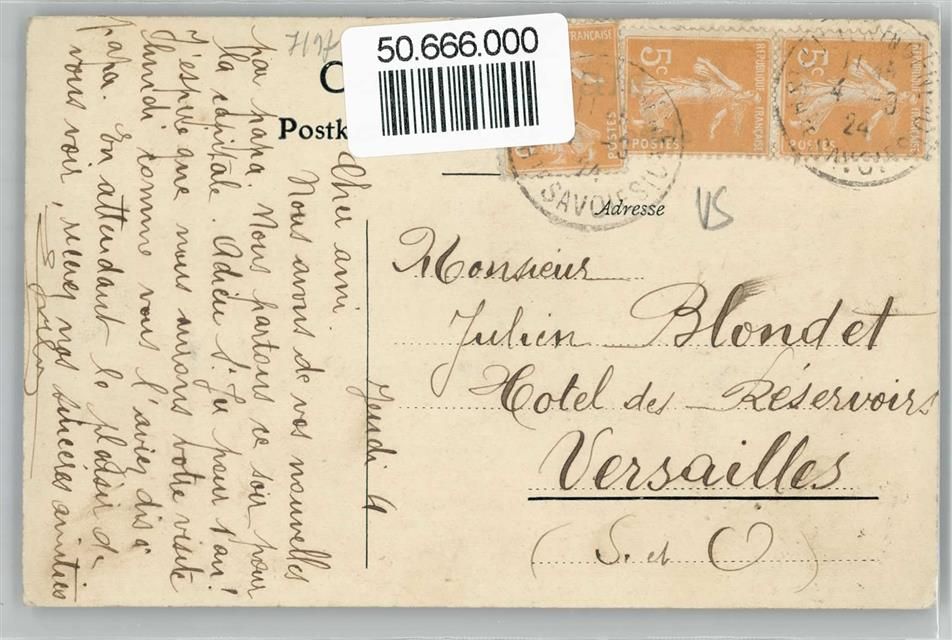 50.666.000
Postk
Adresse
VS
5c
POSTES
RÉPUBLIQUE FRANÇAISE
5c
POSTES
RÉPUBLIQUE FRANÇAISE
POSTES
SAVOIE
24
Jeudi 4
Cher ami.
Nous avons de vos nouvelles
par papa. Nous partons ce soir pour
la capitale. Adieu St. Ju pour l'an!
J'espère que nous aurons votre visite
lundi comme vous l'aviez dis à
papa. En attendant le plaisir de
vous voir, recevez nos sincères amitiés
Monsieur
Julien Blondet
Hotel des Réservoirs
Versailles
(S. et O)